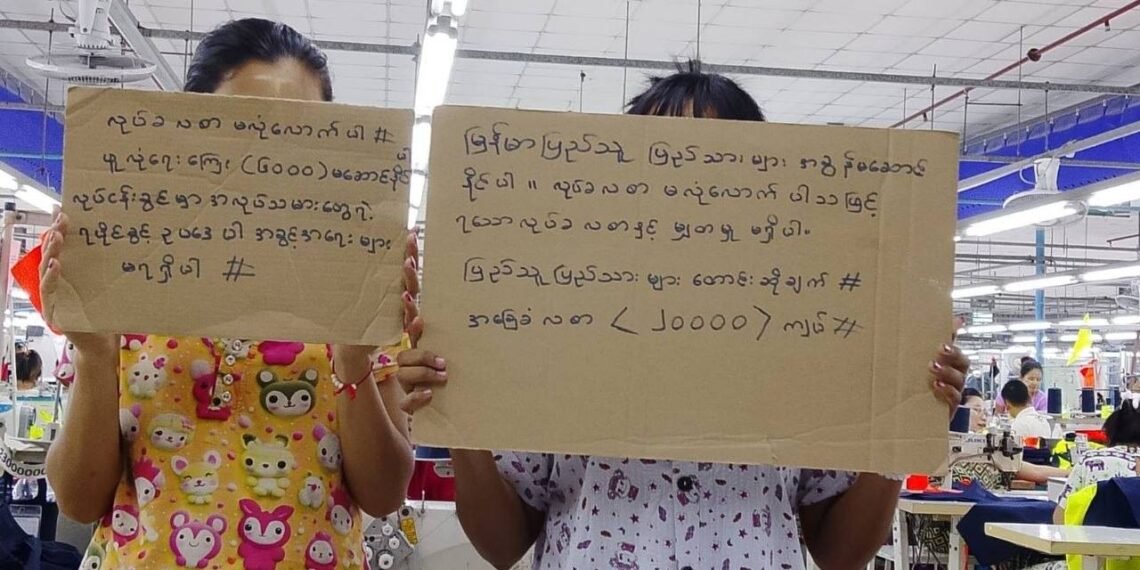 လုပ်ခ လစာ မလုံလောက် ပါ #
လူ လုံရေး ကြေး (၆၀၀၀) မဆောင်နိုင် ပါ
လုပ်ငန်းခွင် မှာ အလုပ်သမားတွေ ရဲ့
ရပိုင်ခွင့် ဥပဒေ ပါ အခွင့်အရေး များ
မရရှိပါ #
မြန်မာ ပြည်သူ ပြည်သား များ အခွန် မဆောင်
နိုင်ပါ ။ လုပ်ခ လစာ မလုံလောက် ပါ သဖြင့်
ရသော လုပ်ခ လစာနှင့် မျှတမှု မရှိပါ။
ပြည်သူ ပြည်သား များ တောင်းဆိုချက် #
အခြေခံ လစာ < ၂၀၀၀၀ > ကျပ် #